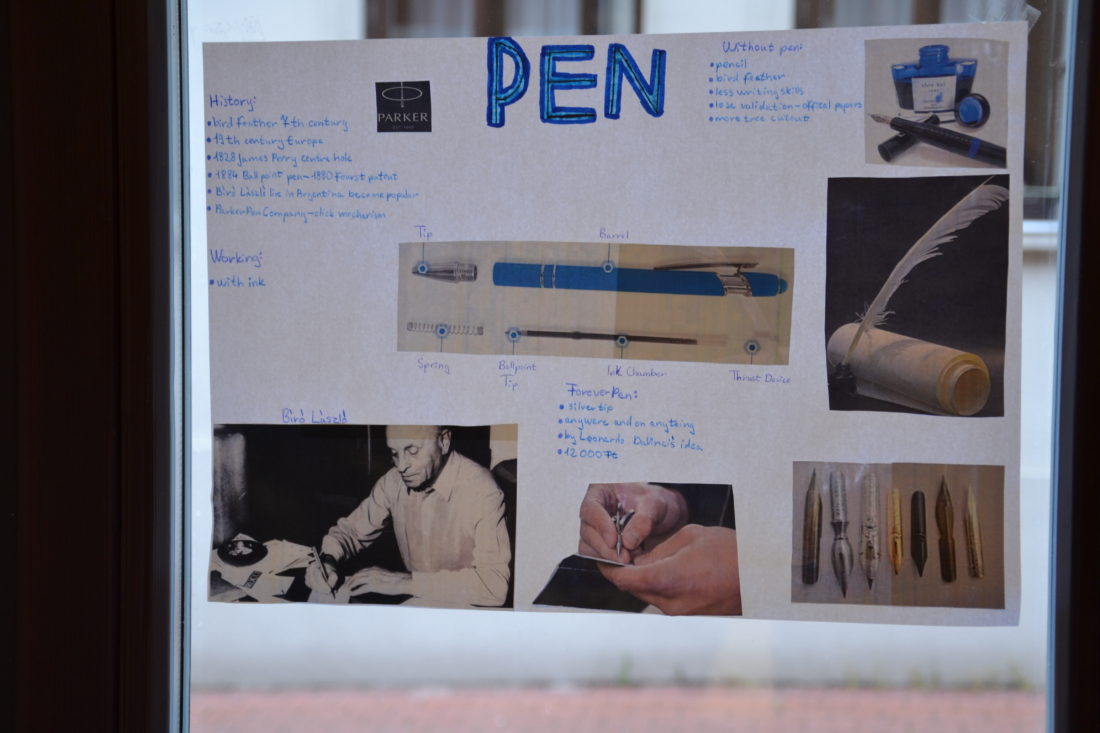 PEN
PARKER
History:
• bird feather 7th century
• 19th century Europe
• 1828 James Perry centre hole
• 1884 Ballpoint pen - 1880 Fourst patent
• Bíró László live in Argentina became popular
• Parker Pen Company - click mechanism
Working:
• with ink
Without pen:
• pencil
• bird feather
• less writing skills
• lose validation - offical papers
• more tree cutout
Tip
Barrel
Spring
Ballpoint
Tip
Ink Chamber
Thrust Device
Forever Pen:
• silver tip
• anywere and on anything
• by Leonardo DaVinci's idea
• 12 000 Ft
Bíró László